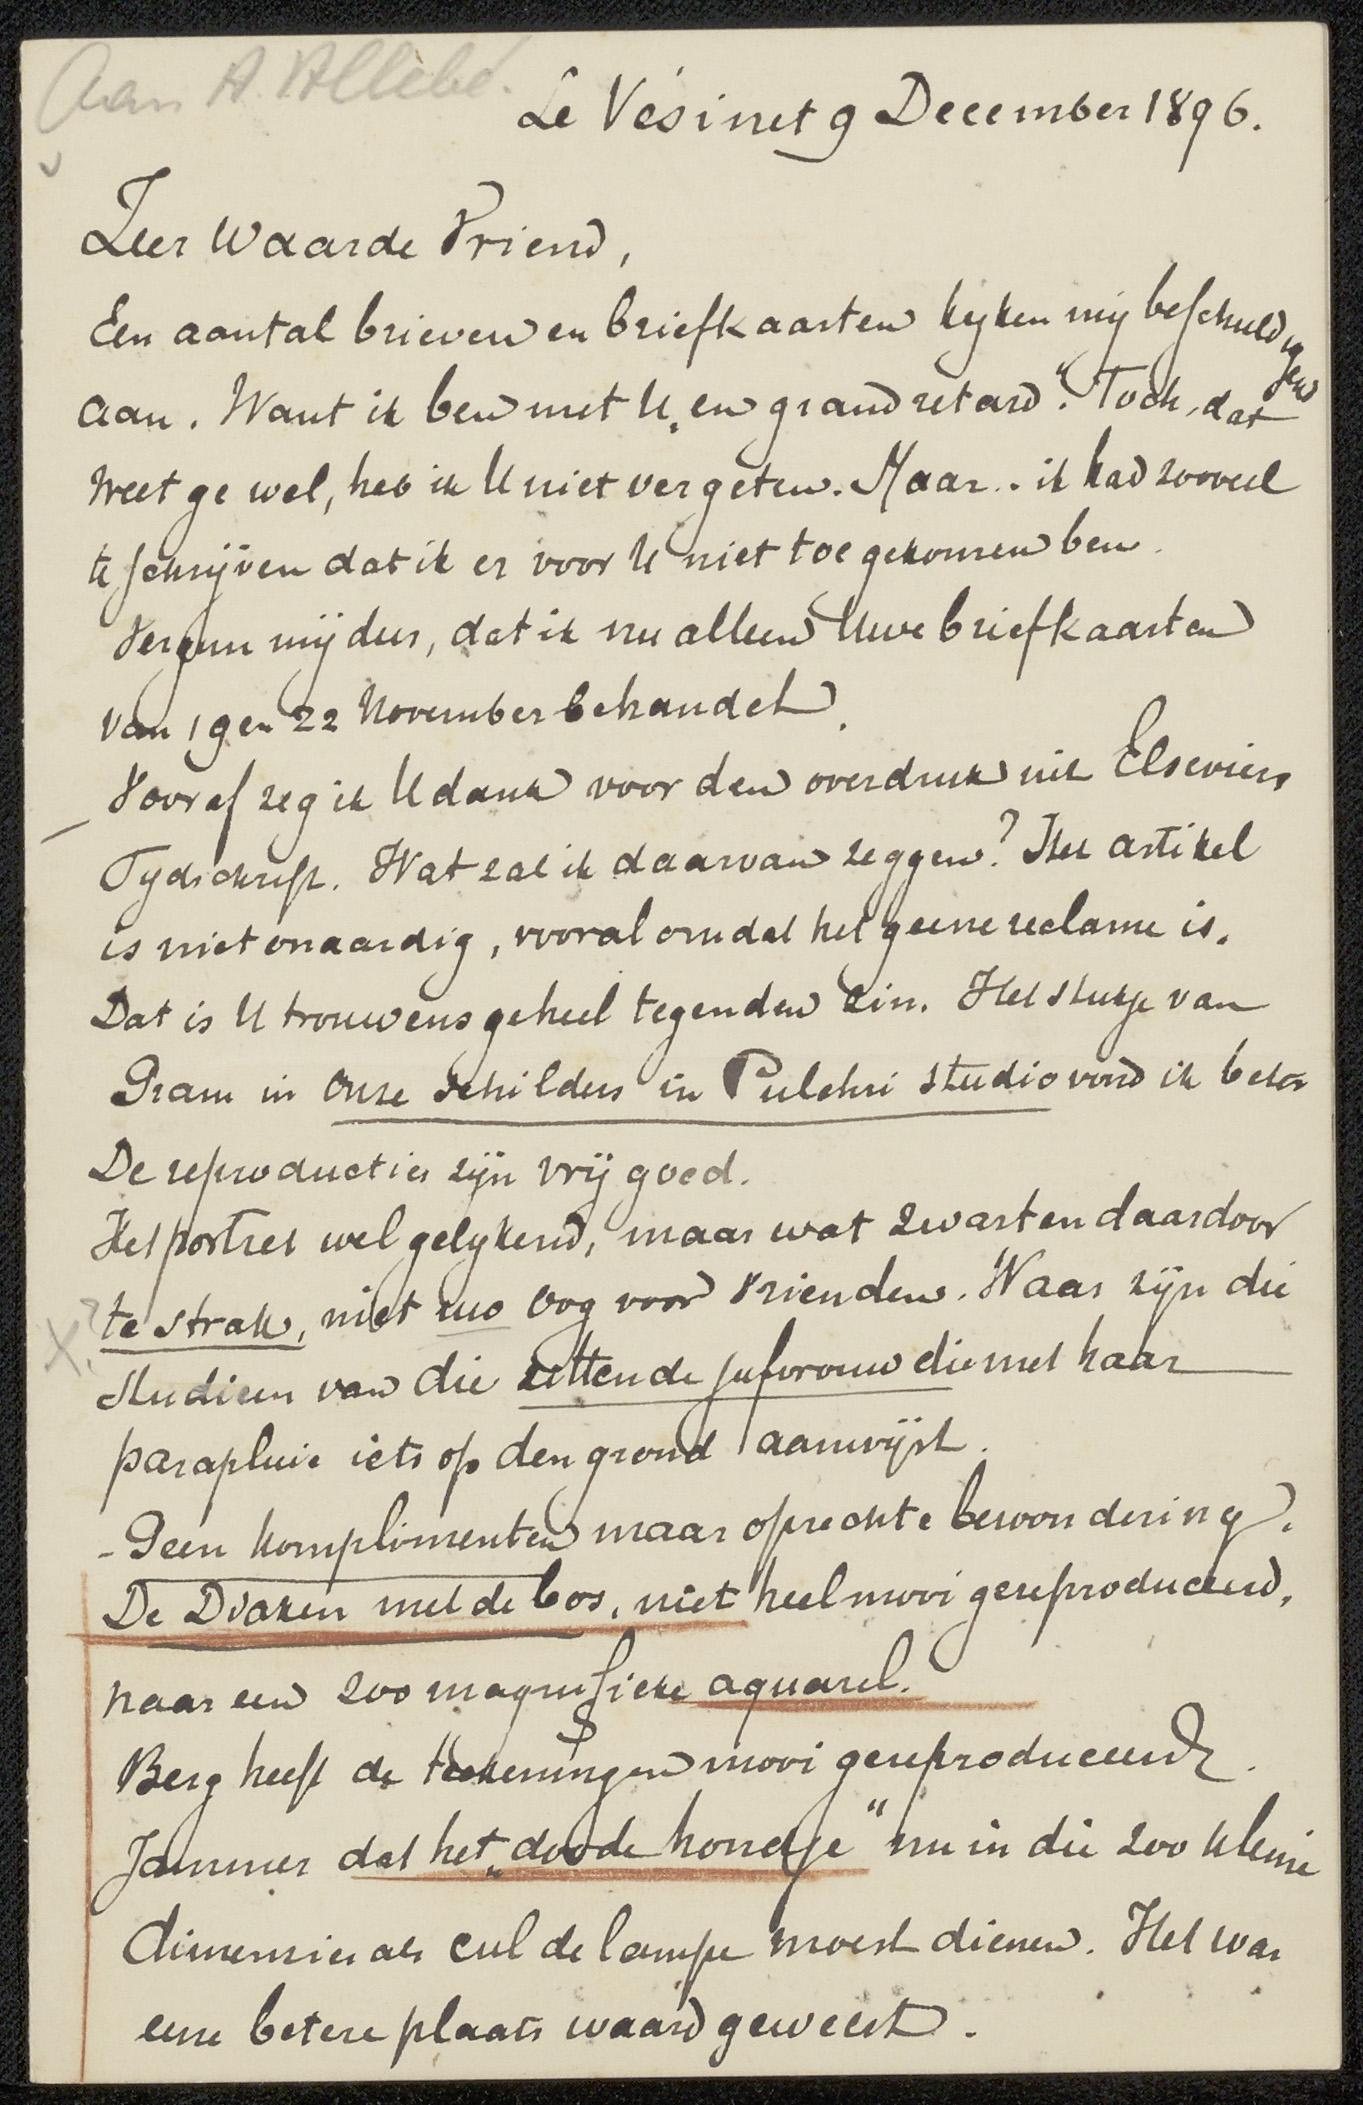 Aan A. Allebé.
Le Vésinet 9 December 1896.
Zeer Waarde Vriend,
Een aantal brieven en briefkaarten kyken mij beschuldigend
aan. Want ik ben met U „en grand retard". Toch, dat
weet ge wel, heb ik U niet vergeten. Maar.. ik had zooveel
te schrijven dat ik er voor U niet toe gekomen ben.
Vergun mij dus, dat ik nu alleen Uwe briefkaarten
van 19 en 22 November behandel.
Vooraf zeg ik U dank voor den overdruk uit Elseviers
Tydschrift. Wat zal ik daarvan zeggen? Het artikel
is niet onaardig, vooral omdat het geene reclame is.
Dat is U trouwens geheel tegen den zin. Het stukje van
Gram in Onze schilders in Pulchri Studio vond ik beter
De reproducties zijn vrij goed.
Het portret wel gelykend, maar wat zwart en daardoor
te strak, niet uw oog voor Vrienden. Waar zijn die
X?
studieen van die zittende jufvrouw die met haar
parapluie iets op den grond aanwijst.
- Geen komplimenten maar oprechte bewondering.
De Draken met de bos, niet heel mooi gereproduceerd,
naar een zoo magnifieke aquarel.
Berg heeft de teekeningen mooi gereproduceerd.
Jammer dat het „doode hondje" nu in die zoo kleine
dimensies als cul de lampe moest dienen. Het was
eene betere plaats waard geweest.